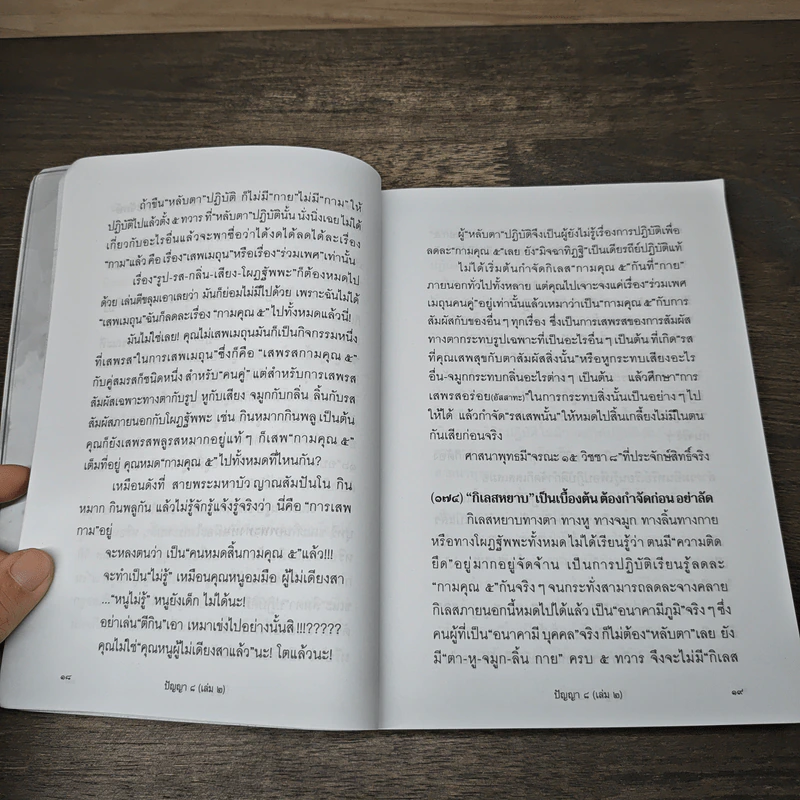 ถ้าขืน“หลับตา”ปฏิบัติ ก็ไม่มี“กาย”ไม่มี“กาม”ให้
ปฏิบัติไปแล้วตั้ง ๕ ทวาร ที่“หลับตา”ปฏิบัตินั้น นั่งนิ่งเฉย ไม่ได้
เกี่ยวกับอะไรอื่นแล้วจะพาซื่อว่าได้งดได้ลดได้ละเรื่อง
“กาม”แล้ว คือ เรื่อง“เสพเมถุน”หรือเรื่อง“ร่วมเพศ”เท่านั้น
เรื่อง“รูป-รส-กลิ่น-เสียง-โผฏฐัพพะ”ก็ต้องหมดไป
ด้วย เล่นตีขลุมเอาเลยว่า มันก็ย่อมไม่มีไปด้วย เพราะฉันไม่ได้
“เสพเมถุน”ฉันก็ลดละเรื่อง “กามคุณ ๕”ไปทั้งหมดแล้วนี่!
มันไม่ใช่เลย! คุณไม่เสพเมถุนมันก็เป็นกิจกรรมหนึ่ง
ที่เสพรส“ในการเสพเมถุน”ซึ่งก็คือ “เสพรสกามคุณ ๕”
กับคู่สมรสก็ชนิดหนึ่ง สำหรับ“คนคู่” แต่สำหรับการเสพรส
สัมผัสเฉพาะทางตากับรูป หูกับเสียง จมูกกับกลิ่น ลิ้นกับรส
สัมผัสภายนอกกับโผฏฐัพพะ เช่น กินหมากกินพลู เป็นต้น
คุณก็ยังเสพรสพลูรสหมากอยู่แท้ๆ ก็เสพ“กามคุณ ๕”
เต็มที่อยู่ คุณหมด“กามคุณ ๕”ไปทั้งหมดที่ไหนกัน?
เหมือนดังที่ สายพระมหาบัว ญาณสัมปันโน กิน
หมาก กินพลูกัน แล้วไม่รู้จักรู้แจ้งรู้จริงว่า นี่คือ “การเสพ
กาม”อยู่
จะหลงตนว่า เป็น“คนหมดสิ้นกามคุณ ๕”แล้ว!!!
จะทำเป็น“ไม่รู้” เหมือนคุณหนูอมมือ ผู้ไม่เดียงสา
...“หนูไม่รู้” หนูยังเด็ก ไม่ได้นะ!
อย่าเล่น“ตีกิน”เอา เหมาเข่งไปอย่างนั้นสิ !!!?????
คุณไม่ใช่“คุณหนูผู้ไม่เดียงสาแล้ว”นะ! โตแล้วนะ!
๑๘
ปัญญา ๘ (เล่ม ๒)
ผู้“หลับตา”ปฏิบัติจึงเป็นผู้ยังไม่รู้เรื่องการปฏิบัติเพื่อ
ลดละ“กามคุณ ๕”เลย ยัง“มิจฉาทิฏฐิ”เป็นเดียรถีย์ปฏิบัติแท้
ไม่ได้เริ่มต้นกำจัดกิเลส“กามคุณ ๕”กันที่“กาย”
ภายนอกทั่วไปทั้งหลาย แต่คุณไปเจาะจงแค่เรื่อง“ร่วมเพศ
เมถุนคนคู่”อยู่เท่านั้นแล้วเหมาว่าเป็น“กามคุณ ๕”กับการ
สัมผัสกับของอื่นๆ ทุกเรื่อง ซึ่งเป็นการเสพรสของการสัมผัส
ทางตากระทบรูปเฉพาะที่เป็นอะไรอื่นๆ เป็นต้น ที่เกิด“รส
ที่คุณเสพสุขกับตาสัมผัสสิ่งนั้น”หรือหูกระทบเสียงอะไร
อื่น-จมูกกระทบกลิ่นอะไรต่างๆ เป็นต้น แล้วศึกษา“การ
เสพรสอร่อย(อัสสาทะ)”ในการกระทบสิ่งนั้นเป็นอย่างๆ ไป
ให้ได้ แล้วกำจัด“รสเสพนั้น”ให้หมดไปสิ้นเกลี้ยงไม่มีในตน
กันเสียก่อนจริง
ศาสนาพุทธมี“จรณะ ๑๕ วิชชา ๘”ที่ประจักษ์สิทธิ์จริง
(๐๗๔) “กิเลสหยาบ”เป็นเบื้องต้น ต้องกำจัดก่อน อย่าลัด
กิเลสหยาบทางตา ทางหู ทางจมูก ทางลิ้นทางกาย
หรือทางโผฏฐัพพะทั้งหมด ไม่ได้เรียนรู้ว่า ตนมี“ความติด
ยึด”อยู่มากอยู่จัดจ้าน เป็นการปฏิบัติเรียนรู้ลดละ
“กามคุณ ๕”กันจริงๆ จนกระทั่งสามารถลดละจางคลาย
กิเลสภายนอกนี้หมดไปได้แล้ว เป็น“อนาคามีภูมิ”จริงๆ ซึ่ง
คนผู้ที่เป็น“อนาคามี บุคคล”จริง ก็ไม่ต้อง“หลับตา”เลย ยัง
มี“ตา-หู-จมูก-ลิ้น กาย” ครบ ๕ ทวาร จึงจะไม่มี“กิเลส
ปัญญา ๘ (เล่ม ๒)
๑๙